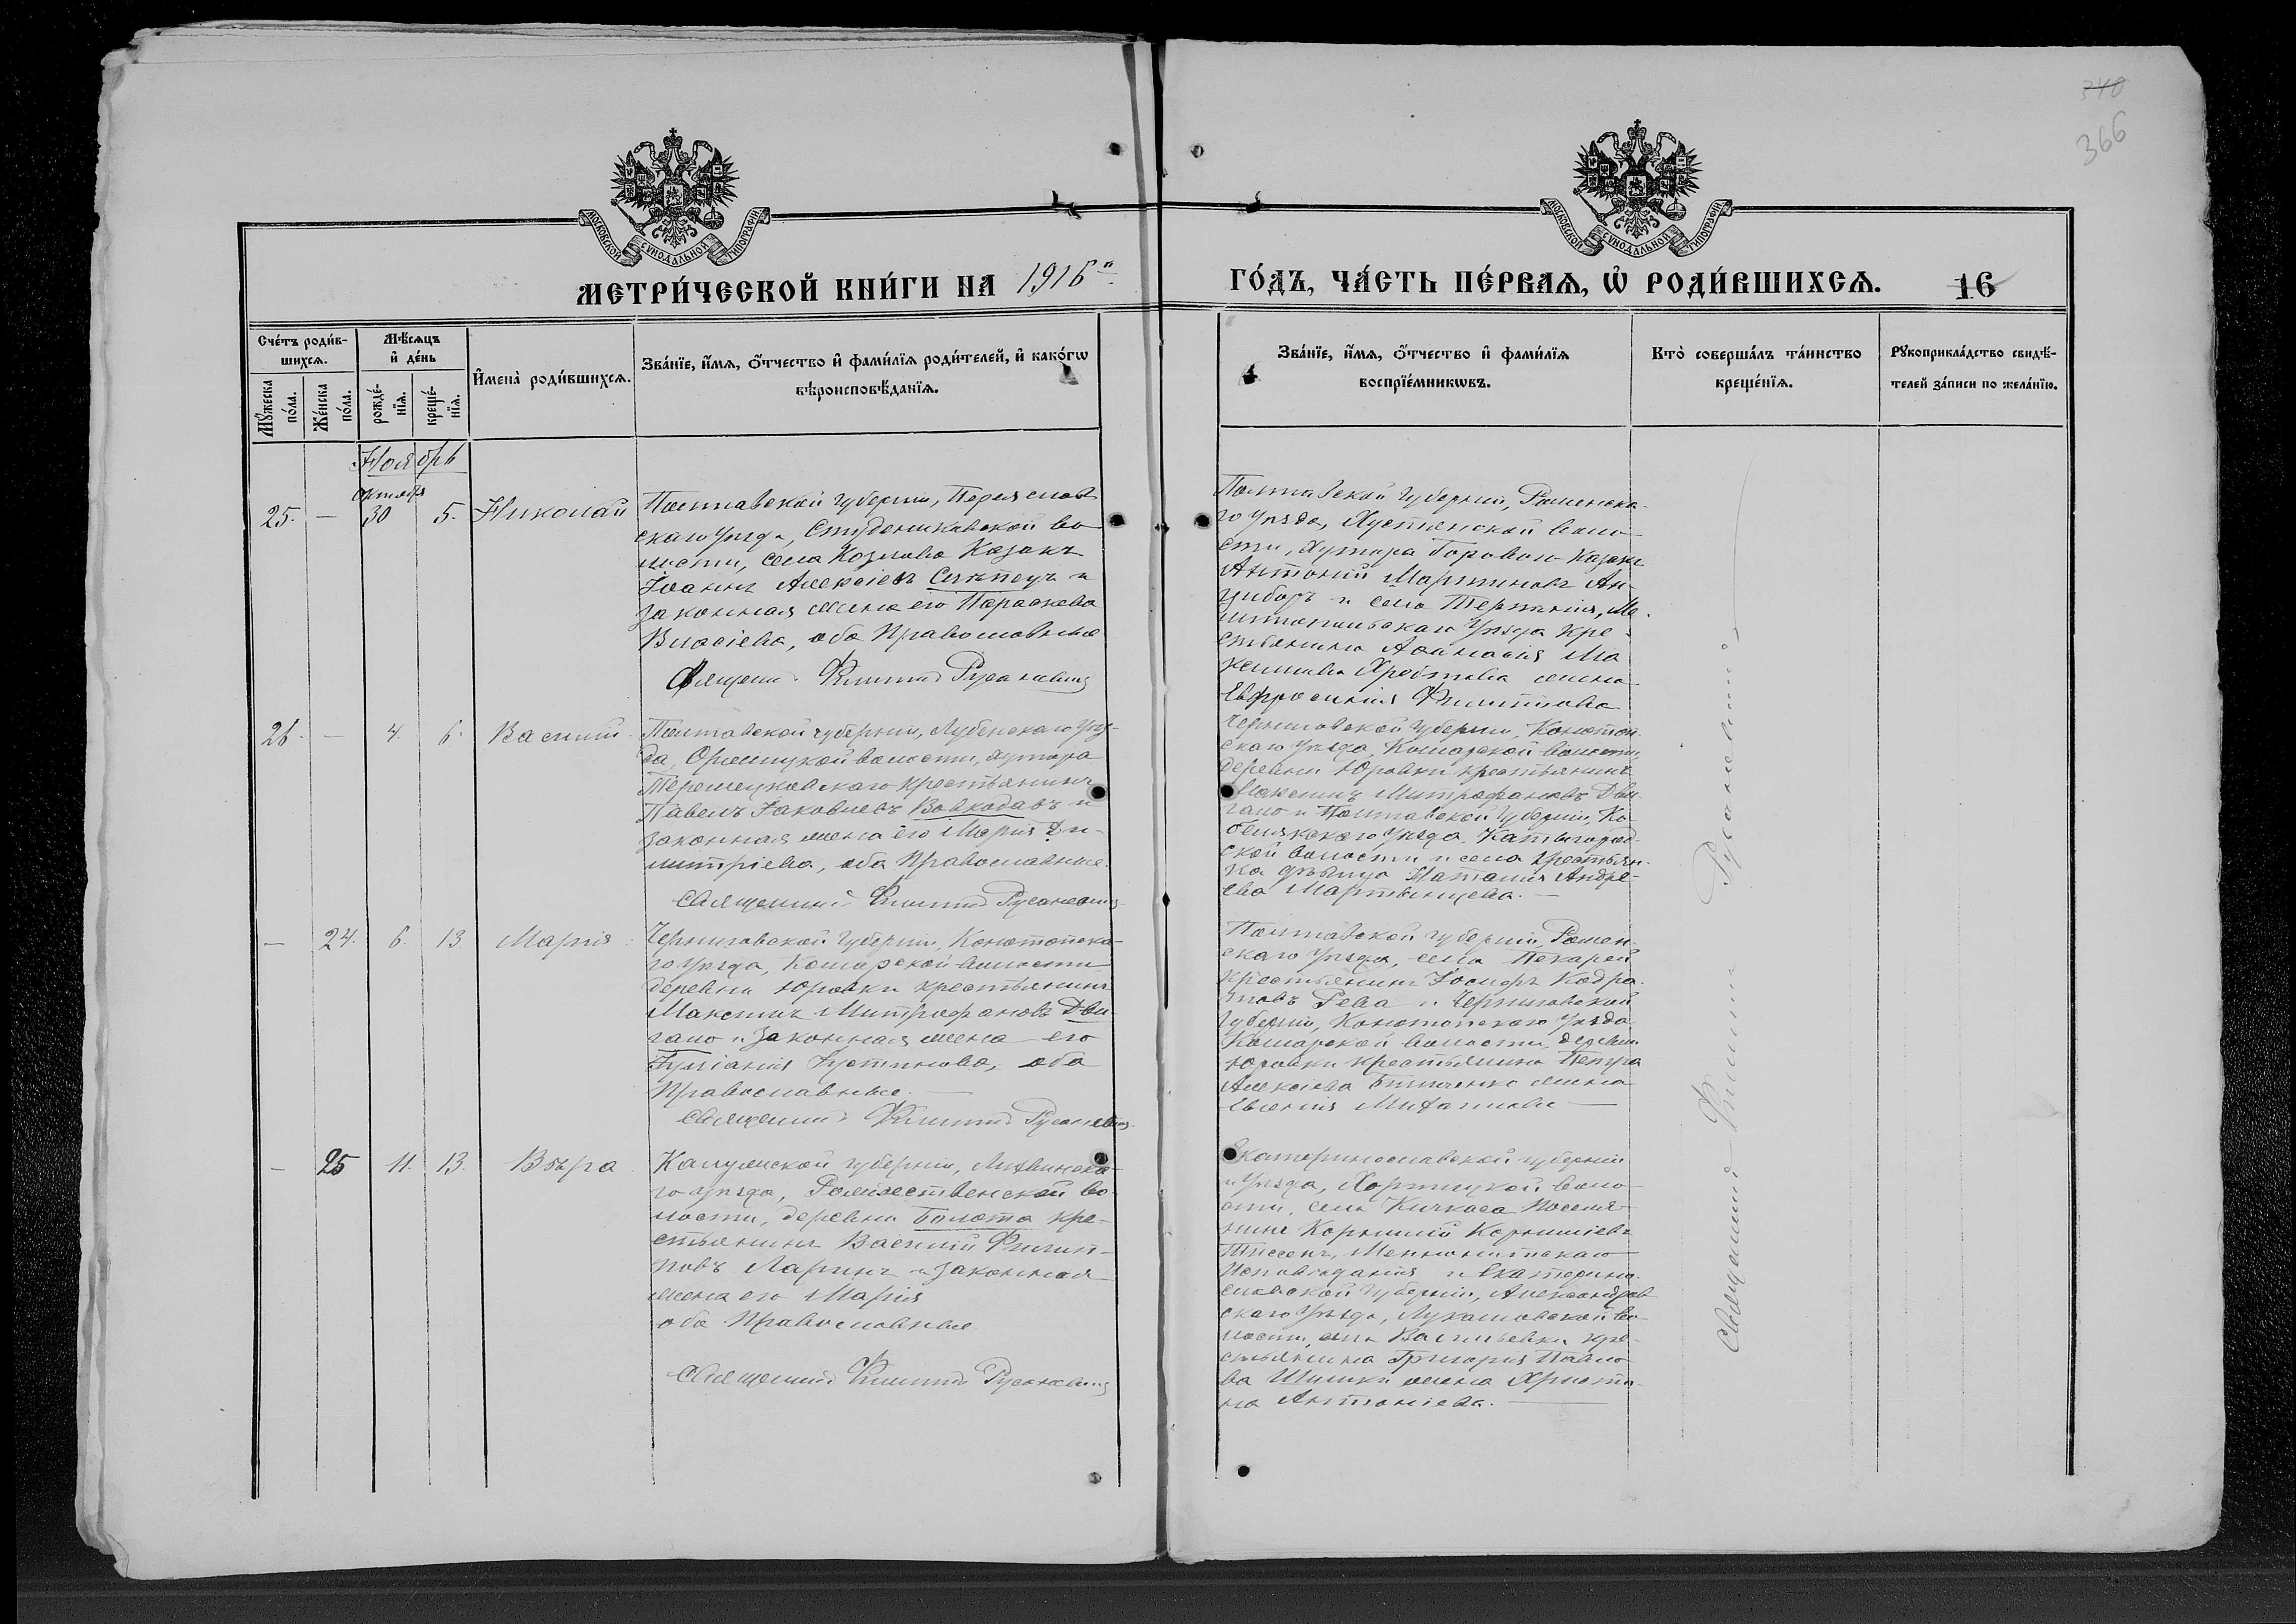 340
366
МОСКОВСКОЙ СѴНОДАЛЬНОЙ ТИПОГРАФІИ
МОСКОВСКОЙ СѴНОДАЛЬНОЙ ТИПОГРАФІИ
МЕТРИ́ЧЕСКОЙ КНИ́ГИ НА 1916
ГО́ДЪ, ЧА́СТЬ ПЕ́РВАѦ, Ѡ҆ РОДИ́ВШИХСѦ.
16
Сче́тъ роди́в-
шихсѧ.
Мꙋ́жеска
по́ла.
Же́нска
по́ла.
Мѣ́сѧцъ
и҆ де́нь
рожде́-
нїѧ.
креще́-
нїѧ.
И҆мена̀ роди́вшихсѧ.
Зва́нїе, и҆́мѧ, ѻ҆́тчество и҆ фами́лїѧ роди́телей, и҆ како́гѡ
вѣроисповѣ́данїѧ.
Зва́нїе, и҆́мѧ, ѻ҆́тчество и҆ фами́лїѧ
воспрїе́мникѡвъ.
Кто̀ соверша́лъ та́инство
креще́нїѧ.
Рꙋкоприкла́дство свидѣ́-
телей за́писи по жела́нїю.
Ноябрь
Октября
25. — 30 5. Николай
Полтавской губерніи, Переяслов
скаго уѣзда, Студениковской во
лости, села Козлова Казакъ
Іоаннъ Алексіевъ и
законная жена его Параскева
Власіева, оба Православные
Священ. Филиппъ Русаневичъ
Полтавской губерніи, Роменска-
го уѣзда, Хустянской воло
сти, хутора Казакъ
Антоній Мартиновъ Ан-
циборъ и села Терпѣнія, Ме-
литопольскаго уѣзда кре-
стьянина Аѳанасія Ма
жена
Евфросинія Филиппова
26. — 4. 6. Василій
Полтавской губерніи, Лубенскаго уѣз-
да, Оржицкой волости, хутора
Терешуковскаго крестьянинъ
Павелъ Іаковлевъ Вовкодавъ и
законная жена его Марія Ди-
митріева, оба Православные.
Священникъ Филиппъ Русаневичъ
Черниговской губерніи, Конотоп-
скаго уѣзда, Кошарской волости,
деревни Юровки крестьянинъ
Максимъ Митрофановъ Дви-
гало и Полтавской губерніи, Ко-
белякскаго уѣзда,
ской волости и села крестьян-
ка дѣвица Наталія Андре-
ева Мартынцева. —
— 24. 6. 13 Марія
Черниговской губерніи, Конотопска-
го уѣзда, Кошарской волости
деревни Юровки крестьянинъ
Максимъ Митрофановъ Дви-
гало и законная жена его
Іуліанія Іустинова, оба
Православные. —
Священникъ Филиппъ Русаневичъ
Полтавской губерніи, Ромен-
скаго уѣзда, села Пекарей
крестьянинъ Іосифъ Кодра-
товъ Рева и Черниговской
губерніи, Конотопскаго уѣзда
Кошарской волости деревни
Юровки крестьянина Петра
Алексіева жена
Евгенія Михаилова —
— 25 11. 13. Вѣра
Калужской губерніи, Лихвинска-
го уѣзда, Рождественской во-
лости, деревни Болота кре-
стьянинъ Василій Филип-
повъ Ларинъ и законная
жена его Марія
оба Православные.
Священникъ Филиппъ Русаневичъ
Екатеринославской губерніи
и уѣзда, Хортицкой воло-
сти, села Кичкаса Поселя-
нинъ Корнилій Корниліевъ
Тиссенъ, Меннонитскаго
исповѣданія и Екатерино-
славской губерніи, Александров
скаго уѣзда, Лукашовской во-
лости, села Васильевки кре-
стьянина Григорія Павло-
ва Шишки жена Христи-
на Антоніева. —
Священникъ Филиппъ Русаневичъ